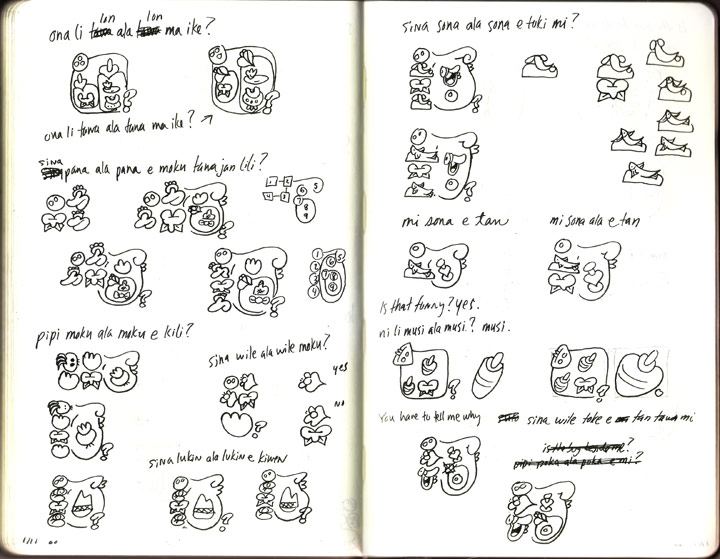 lon lon
ona li ala ma ike?
ona li tawa ala tawa ma ike?
sina
pana ala pana e moku tawa jan lili?
pipi moku ala moku e kili?
sina wile ala wile moku?
yes
no
sina lukin ala lukin e kiwen
sina sona ala sona e toki mi?
mi sona e tan
mi sona ala e tan
Is that funny? yes.
ni li musi ala musi? musi.
You have to tell me why
sina wile toke e tan tawa mi